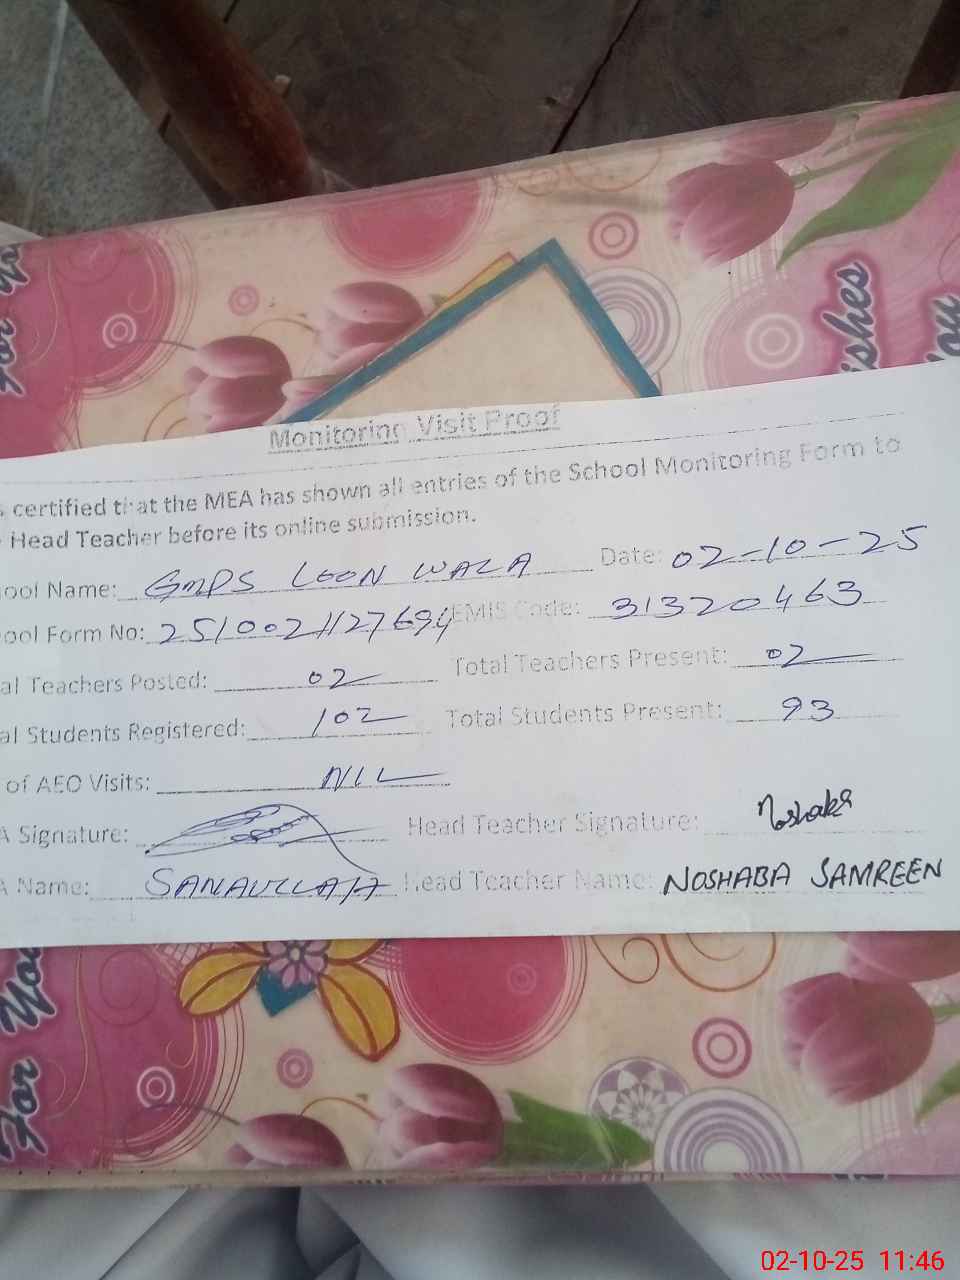 ishes
You
For You
Monitoring Visit Proof
certified that the MEA has shown all entries of the School Monitoring Form to
Head Teacher before its online submission.
ool Name: GMPS LOON WALA Date: 02-10-25
ool Form No: EMIS Code: 31320463
al Teachers Posted: 02 Total Teachers Present: 02
al Students Registered: 102 Total Students Present: 93
of AEO Visits: NIL
A Signature: Head Teacher Signature: Noshaba
A Name: SANAULLAH Head Teacher Name: NOSHABA SAMREEN
For You
02-10-25 11:46